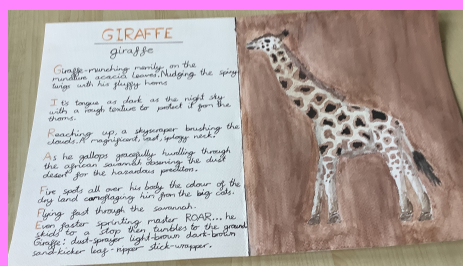 GIRAFFE
giraffe
Giraffe-munching merrily on the
miniature acacia leaves. Nudging the spiny
twigs with his fluffy horns
It's tongue as dark as the night sky
with a rough texture to protect it from the
thorns.
Reaching up, a skyscraper brushing the
clouds. A magnificent, neck.
As he gallops gracefully hurdling through
the african savannah the dust
desert for the hazardous predators.
Fire spots all over his body the colour of the
dry land camoflaging him from the big cats.
Flying fast through the savannah.
Even faster sprinting master ROAR... he
skids to a stop then tumbles to the ground
Giraffe: dust-sprayer light-brown dark-brown
sand-kicker leaf-ripper stick-wrapper.